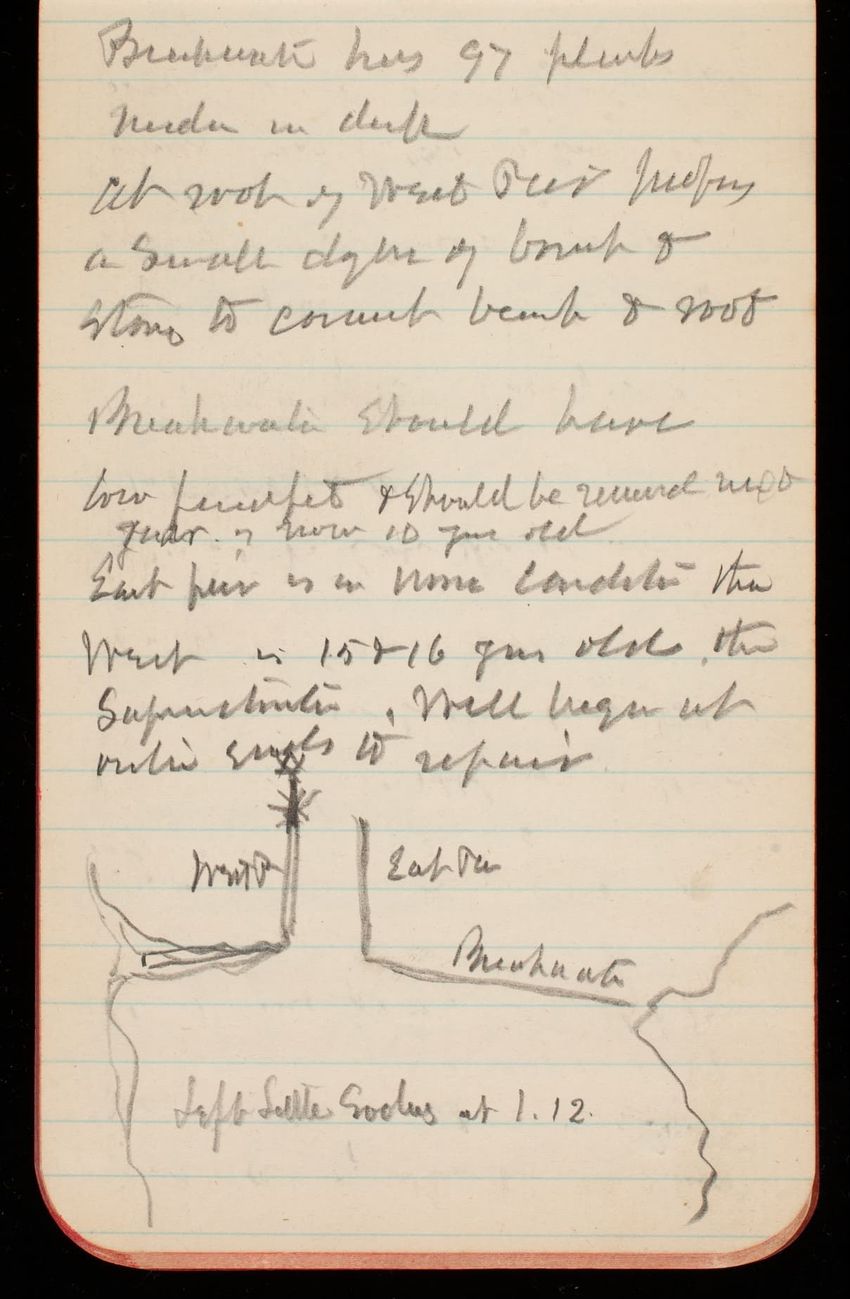 Breakwater has 97 planks
under in
At root of West Pier
a Small of brush &
Stone to connect bank & root
Breakwater Should have
low parapet & Should be renewed next
year. is now 10 yrs old
East pier is in worse condition than
West is 15 & 16 yrs old. the
Superstructure. Will begin at
outer ends to repair
West P
East Pier
Breakwater
Left Little Sodus at 1.12.